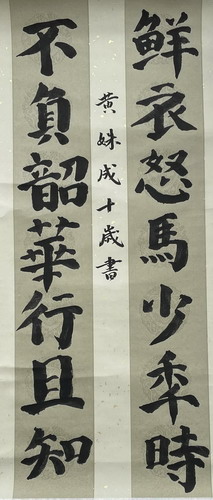 鮮衣怒馬少年時
不負韶華行且知
黄姝成十歲書